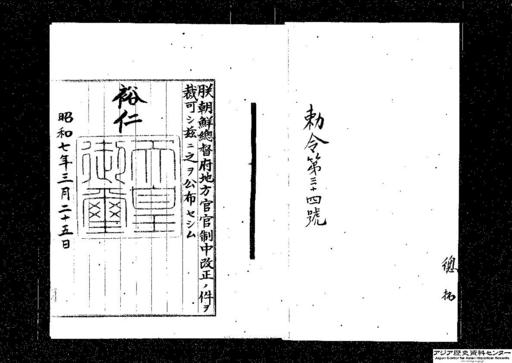 勅令第三十四號
朕朝鮮總督府地方官官制中改正ノ件ヲ
裁可シ茲ニ之ヲ公布セシム
裕仁
天皇
御璽
昭和七年三月二十五日
アジア歴史資料センター
Japan Center for Asian Historical Records